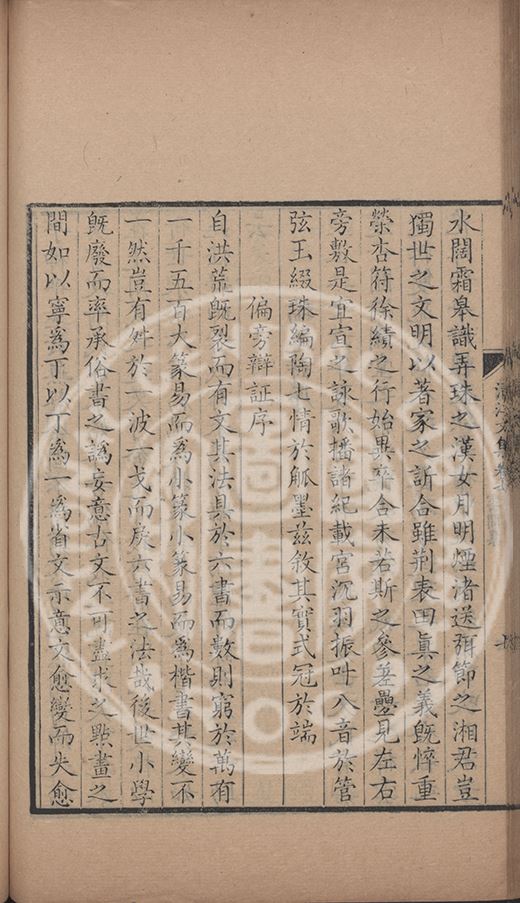 水闊霜皋識弄珠之漢女月明煙渚送弭節之湘君豈
獨世之文明以著家之訢合雖荆表田眞之義旣悴重
榮杏符徐績之行始異卒合未若斯之參差疊見左右
旁敷是宜宣之詠歌播諸紀載宮沉羽振叶八音於管
弦玉綴珠編陶七情於觚墨兹敘其實式冠於端
偏旁辯証序
自洪荒旣裂而有文其法具於六書而數則窮於萬有
一千五百大篆易而爲小篆小篆易而爲楷書其變不
一然豈有舛於一波一戈而戾六書之法哉後世小學
旣廢而率承俗書之譌妄意古文不可盡求之點畫之
間如以寧爲丁以丁爲一爲省文示意文愈變而失愈